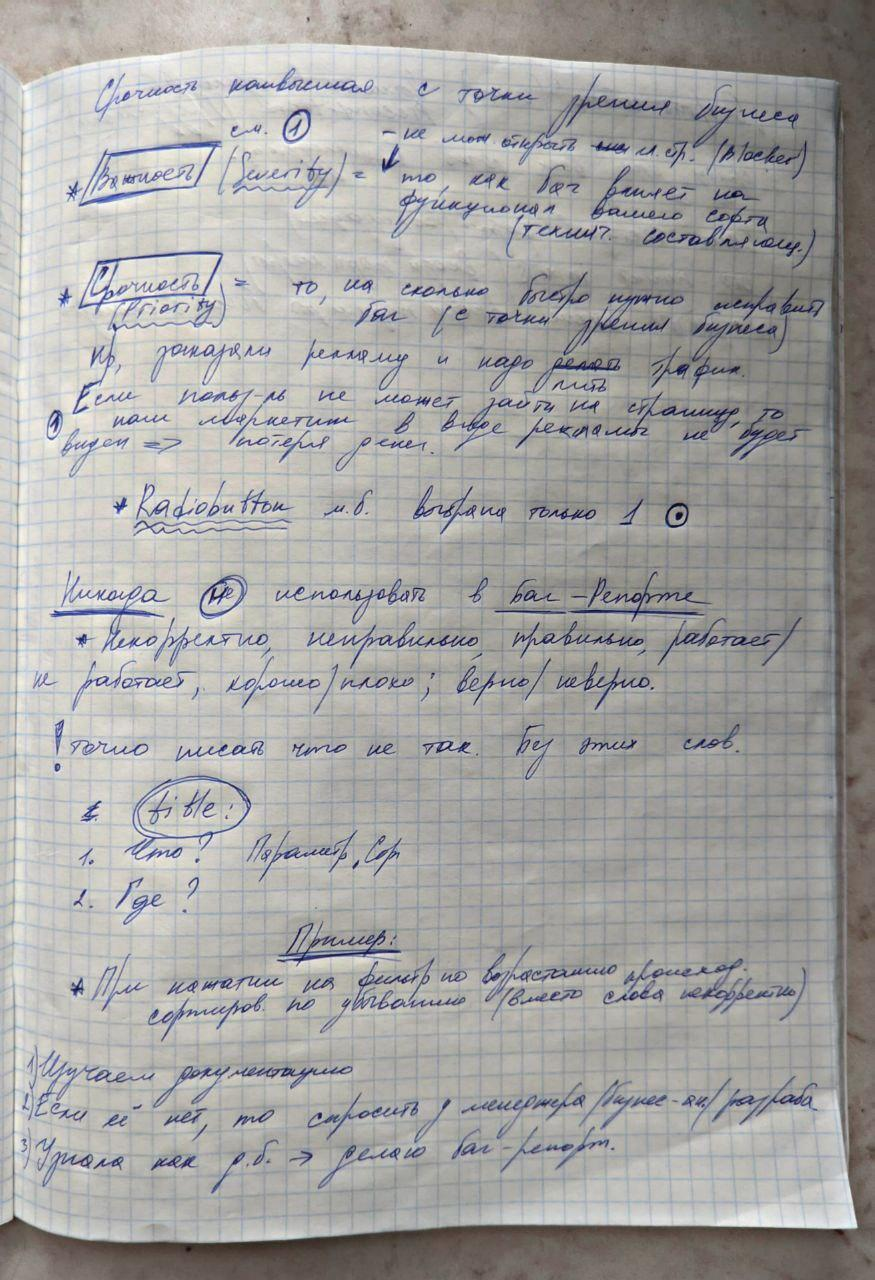 Срочность наивысшая с точки зрения бизнеса
см. ① - не мож открыть м. стр. (Blocker)
* Важность (Severity) = то, как баг влияет на
функционал вашего софта
(технич. составляющ.)
* Срочность = то, на сколько быстро нужно исправить
(Priority) баг (с точки зрения бизнеса)
Нр, заказали рекламу и надо делать трафик.
лить
Если польз-ль не может зайти на страницу, то
① наш маркетинг в виде рекламы не будет
виден => потеря денег.
* Radiobutton м.б. выбрана только 1 ⊙
Никогда не использовать в Баг-Репорте
* Некорректно, неправильно, правильно, работает/
не работает, хорошо/плохо; верно/неверно.
! точно писать что не так. Без этих слов.
title:
1. Что? Параметр, Сор
2. Где?
Пример:
* При нажатии на фильтр по возрастанию происход.
сортиров. по убыванию (вместо слова некорректно)
1) Изучаем документацию
2) Если её нет, то спросить у менеджера/бизнес-ан./разраба
3) Узнала как д.б. → делаю баг-репорт.